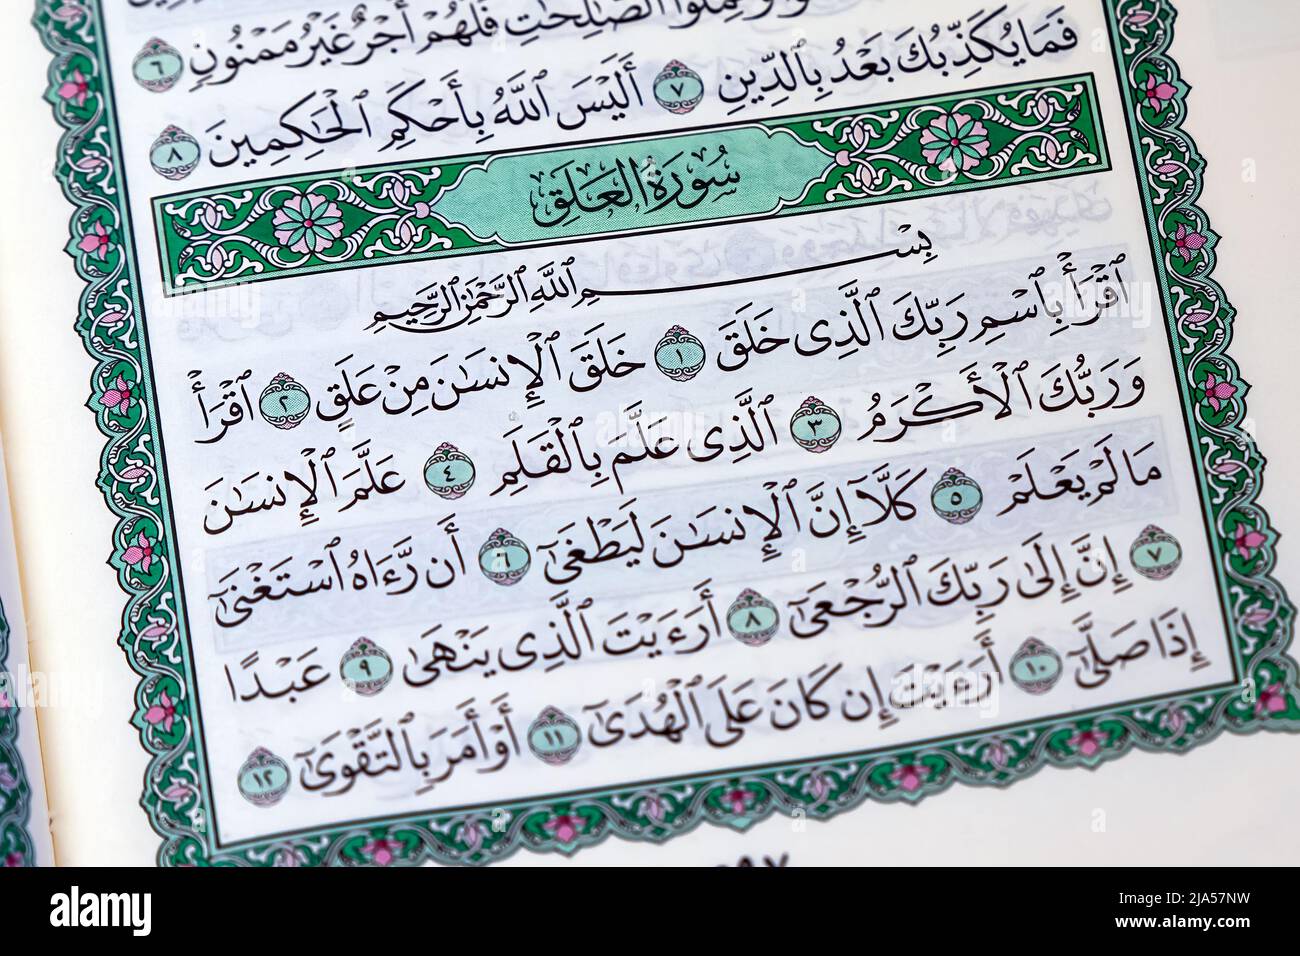 وَعَمِلُوا۟ ٱلصَّٰلِحَٰتِ فَلَهُمْ أَجْرٌ غَيْرُ مَمْنُونٍ ٦
فَمَا يُكَذِّبُكَ بَعْدُ بِٱلدِّينِ ٧ أَلَيْسَ ٱللَّهُ بِأَحْكَمِ ٱلْحَٰكِمِينَ ٨
سُورَةُ العَلَقِ
بِسْمِ ٱللَّهِ ٱلرَّحْمَٰنِ ٱلرَّحِيمِ
ٱقْرَأْ بِٱسْمِ رَبِّكَ ٱلَّذِى خَلَقَ ١ خَلَقَ ٱلْإِنسَٰنَ مِنْ عَلَقٍ ٢ ٱقْرَأْ
وَرَبُّكَ ٱلْأَكْرَمُ ٣ ٱلَّذِى عَلَّمَ بِٱلْقَلَمِ ٤ عَلَّمَ ٱلْإِنسَٰنَ
مَا لَمْ يَعْلَمْ ٥ كَلَّآ إِنَّ ٱلْإِنسَٰنَ لَيَطْغَىٰٓ ٦ أَن رَّءَاهُ ٱسْتَغْنَىٰٓ
٧ إِنَّ إِلَىٰ رَبِّكَ ٱلرُّجْعَىٰٓ ٨ أَرَءَيْتَ ٱلَّذِى يَنْهَىٰ ٩ عَبْدًا
إِذَا صَلَّىٰٓ ١٠ أَرَءَيْتَ إِن كَانَ عَلَى ٱلْهُدَىٰٓ ١١ أَوْ أَمَرَ بِٱلتَّقْوَىٰٓ ١٢
alamy
Image ID: 2JA57NW
www.alamy.com